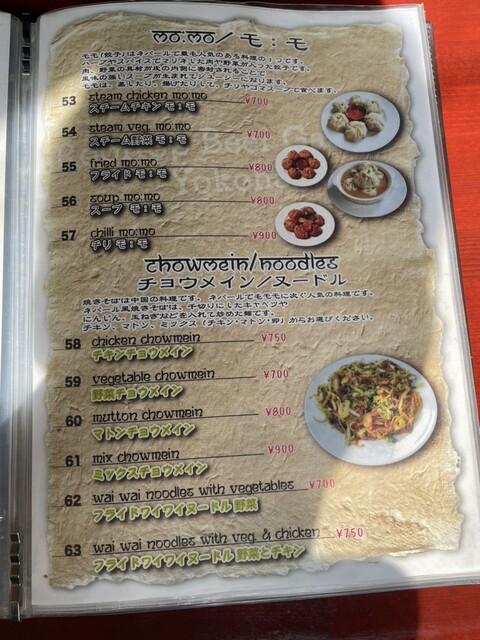 mo:mo/ モ：モ
モモ(餃子)はネパールで最も人気のある料理の1つです。
モモは、蒸したり、揚げたりして、チリやゴマスープで食べます。
53 steam chicken mo:mo ¥700
スチームチキン モ：モ
54 steam veg. mo:mo ¥700
スチーム野菜 モ：モ
55 fried mo:mo ¥800
フライド モ：モ
56 soup mo:mo ¥800
スープ モ：モ
57 chilli mo:mo ¥900
チリ モ：モ
chowmein/noodles
チョウメイン/ヌードル
焼きそばは中国の料理です。ネパールでもモモに次ぐ人気の料理です。
ネパール風焼きそばは、千切りにしたキャベツや
にんじん、玉ねぎなどを入れて炒めた麺です。
チキン、マトン、ミックス (チキン・マトン・卵) からお選びください。
58 chicken chowmein ¥750
チキンチョウメイン
59 vegetable chowmein ¥700
野菜チョウメイン
60 mutton chowmein ¥800
マトンチョウメイン
61 mix chowmein ¥900
ミックスチョウメイン
62 wai wai noodles with vegetables ¥700
フライドワイワイヌードル 野菜
63 wai wai noodles with veg. & chicken ¥750
フライドワイワイヌードル 野菜とチキン